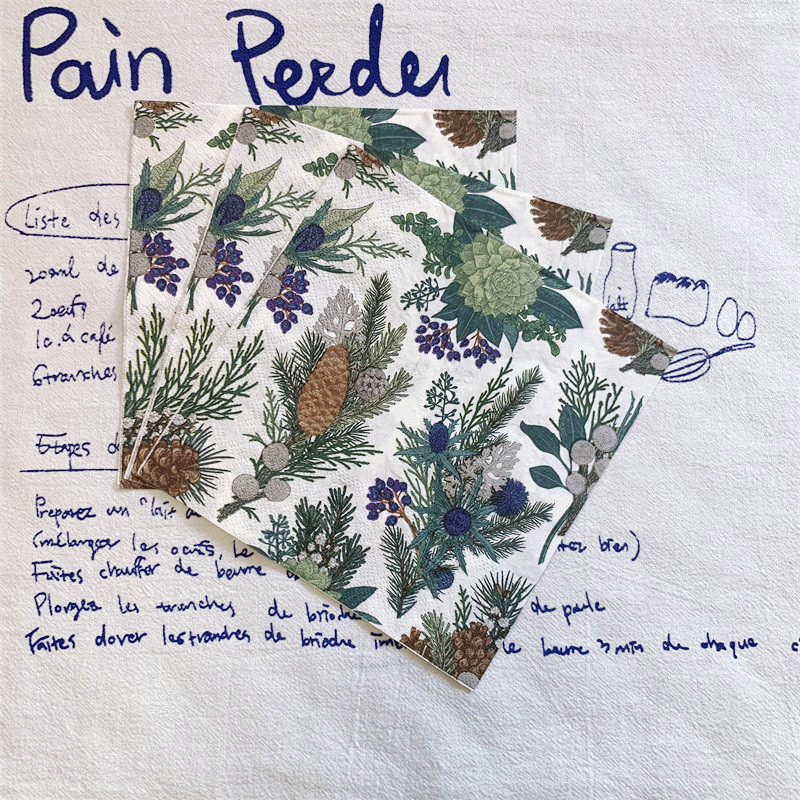 Pain Perdu
Liste des
20ml de
2 oeufs
1c.à café
6 tranches
lait
Etapes d
Preparez un "lait d
(mélanger les oeufs, le bien)
Faites chauffer de beurre
Plongez les tranches de brioche de
Faites dorer les tranches de brioche le beurre 3 min de chaque c